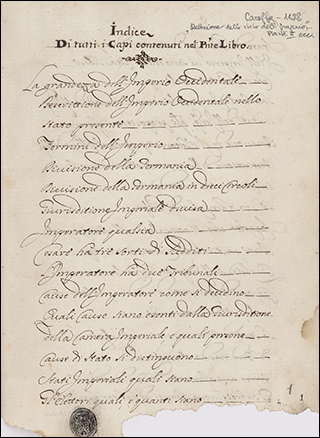 Caraffa - 1688
Indice
Di tutti i Capi contenuti nel Pñte Libro.
La grandezza dell'Imperio Occidentale
Descrittione dell'Imperio Occidentale nello
Stato presente
Termini dell'Imperio
Divisione della Germania
Divisione della Germania in dieci Circoli
Giurisditione Imperiale divisa
Imperatore qual sia
Cesare ha tre sorti di sudditi
L'Imperatore ha due Tribunale
Cause dell'Imperatore come si decidino
Quali Cause siano esenti dalla Giurisditione
della Camera Imperiale e quali persone
Cause di Stato si distinguono
Stati Imperiale quali siano
Gl'Elettori quali e quanti siano
1
1